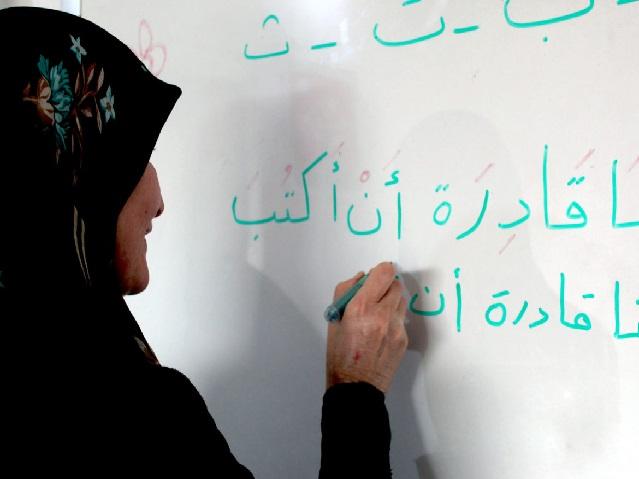 ب - ت - ث
ـَا قَادِرَة أَنْ أَكتُبَ
نا قادرة أن